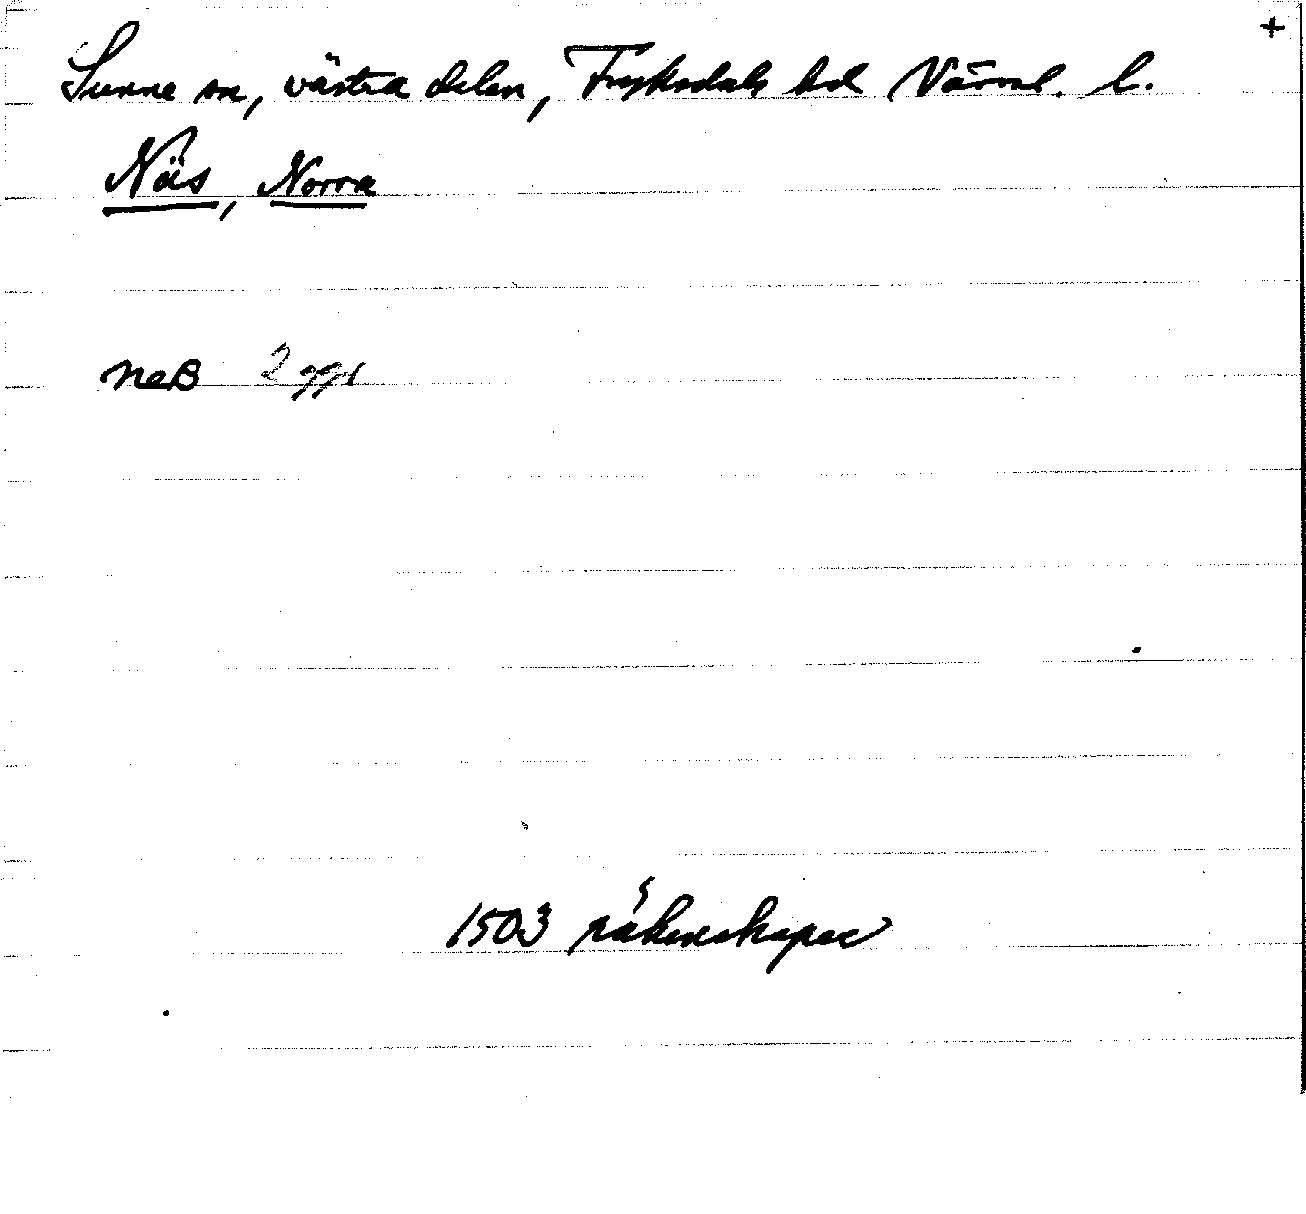 +
Sunne sn, västra delen, Fryksdals hd Värml. l.
Näs, Norra
neß 2 ggr
1503 räkenskaper